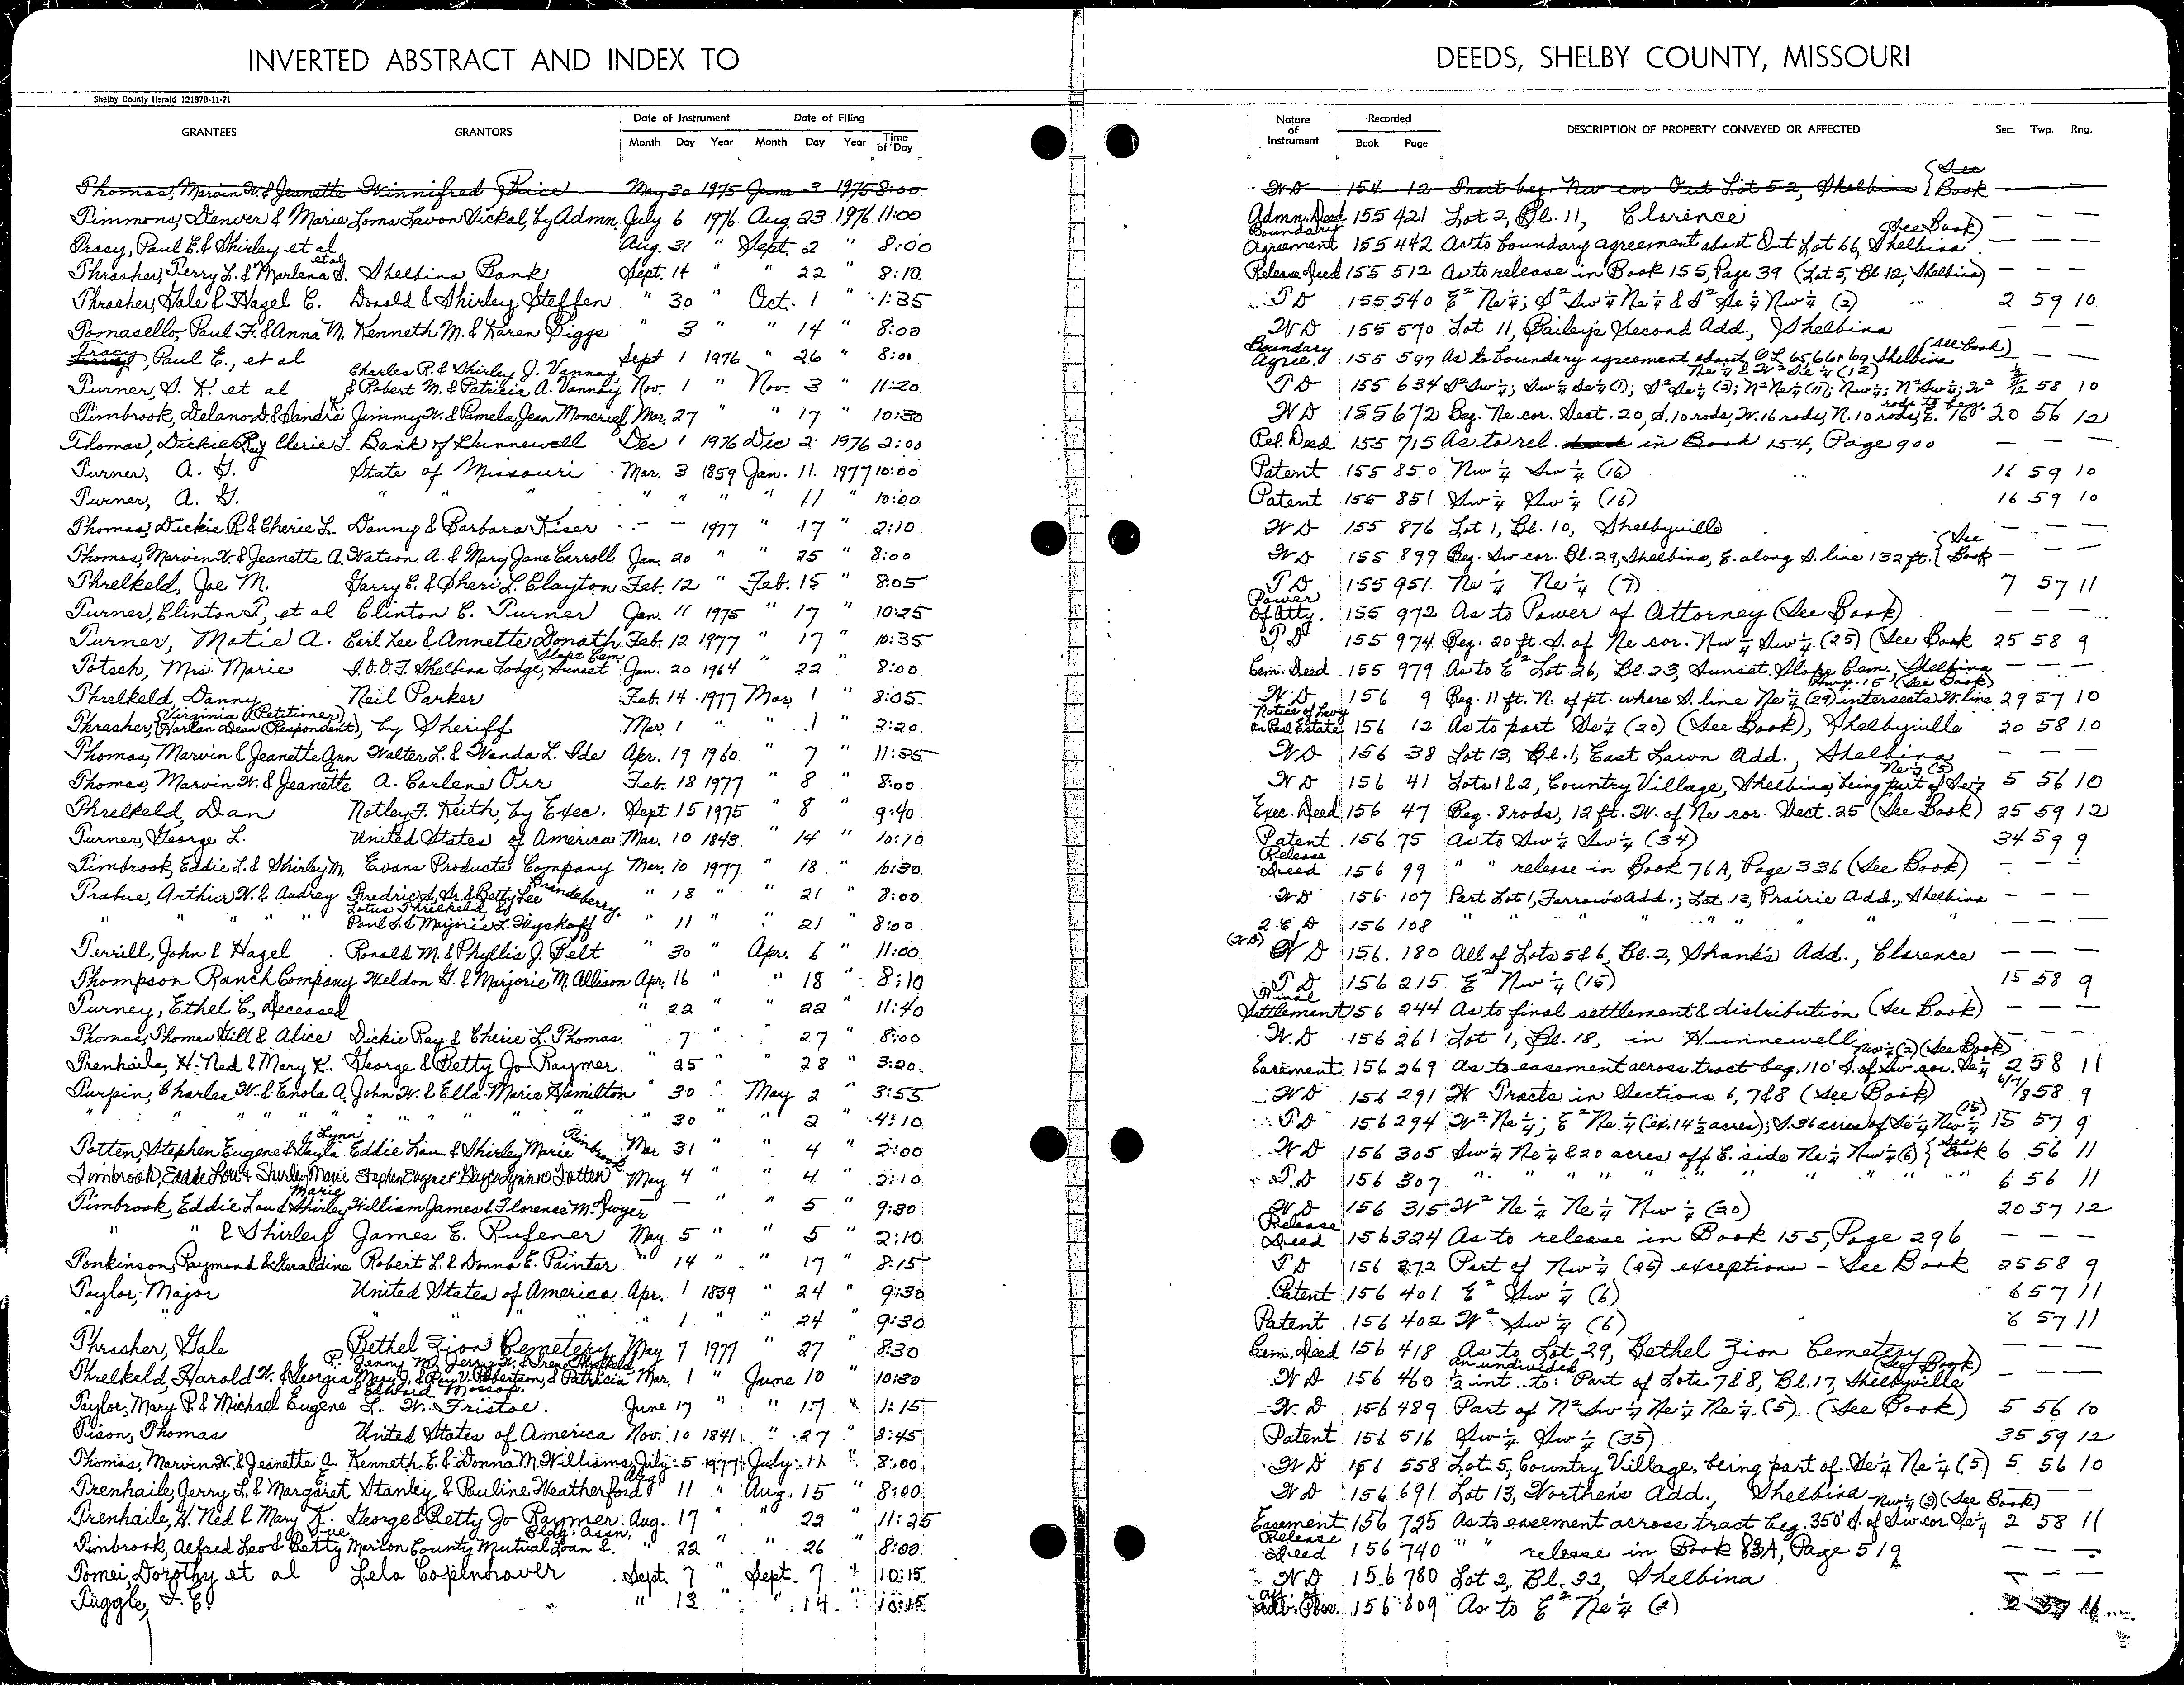 INVERTED ABSTRACT AND INDEX TO DEEDS, SHELBY COUNTY, MISSOURI
Shelby County Herald 12187B-11-71
GRANTEES GRANTORS Date of Instrument Month Day Year Date of Filing Month Day Year Time of Day Nature of Instrument Recorded Book Page DESCRIPTION OF PROPERTY CONVEYED OR AFFECTED Sec. Twp. Rng.
Thomas, Marvin W. & Jeanette Winnifred Price May 30 1975 June 3 1975 8:00 WD 154 12 Tract beg. Nw cor Out Lot 52, Shelbina (See Book — — —
Timmons, Denver & Marie Loma Lavon Dickal, by Admn. July 6 1976 Aug. 23 1976 11:00 Admn. Deed 155 421 Lot 2, Bl. 11, Clarence — — —
Tracy, Paul E. & Shirley et al Aug. 31 " Sept. 2 " 8:00 Boundary Agreement 155 442 As to boundary agreement about Out Lot 66, Shelbina (See Book) — — —
Thrasher, Terry L. & Marlena S. et al Shelbina Bank Sept. 14 " " 22 " 8:10 Release Deed 155 512 As to release in Book 155, Page 39 (Lot 5, Bl 12, Shelbina) — — —
Thrasher, Gale & Hazel C. Donald & Shirley Steffen " 30 " Oct. 1 " 1:35 TD 155 540 E² Ne¼; S² Sw¼ Ne¼ & S² Se¼ Nw¼ (2) 2 59 10
Tomasello, Paul F. & Anna M. Kenneth M. & Karen Biggs " 3 " " 14 " 8:00 WD 155 570 Lot 11, Bailey's Second Add., Shelbina — — —
Tracy, Paul E., et al Sept 1 1976 " 26 " 8:00 Boundary Agree. 155 597 As to boundary agreement about OL 65, 66 & 69 Shelbina (See Book) — — —
Turner, S. K. et al Charles R. & Shirley J. Vannoy & Robert M. & Patricia A. Vannoy Nov. 1 " Nov. 3 " 11:20 TD 155 634 S² Sw¼; Sw¼ Se¼ (1); S² Se¼ (2); N² Ne¼ (11); Nw¼; N² Sw¼; W² Ne¼ & W² Se¼ (12) 58 10
Timbrook, Delano D. & Sandra Jimmy W. & Pamela Jean Moncrief Mar. 27 " " 17 " 10:30 WD 155 672 Beg. Ne cor. Sect. 20, S. 10 rods, W. 16 rods, N. 10 rods, E. 16 rods to beg. 20 56 12
Thomas, Dickie Ray Cherie L. Bank of Hunnewell Dec 1 1976 Dec 2 1976 2:00 Rel. Deed 155 715 As to rel. in Book 154, Page 900 — — —
Turner, A. G. State of Missouri Mar. 3 1859 Jan. 11 1977 10:00 Patent 155 850 Nw¼ Sw¼ (16) 16 59 10
Turner, A. G. " " " " " " " 11 " 10:00 Patent 155 851 Sw¼ Sw¼ (16) 16 59 10
Thomas, Dickie R. & Cherie L. Danny & Barbara Kiser — — 1977 " 17 " 2:10 WD 155 876 Lot 1, Bl. 10, Shelbyville — — —
Thomas, Marvin W. & Jeanette A. Watson A. & Mary Jane Carroll Jan. 20 " " 25 " 8:00 WD 155 899 Beg. Sw cor. Bl. 29, Shelbina, E. along S. line 132 ft. (See Book — — —
Threlkeld, Joe M. Harry C. & Sheri L. Clayton Feb. 12 " Feb. 15 " 8:05 TD 155 951 Ne¼ Ne¼ (7) 7 57 11
Turner, Clinton T., et al Clinton C. Turner Jan. 11 1975 " 17 " 10:25 Power Of Atty. 155 972 As to Power of Attorney (See Book) — — —
Turner, Motie A. Earl Lee & Annette Donath Feb. 12 1977 " 17 " 10:35 TD 155 974 Beg. 20 ft. S. of Ne cor. Nw¼ Sw¼ (25) (See Book 25 58 9
Totsch, Mrs. Marie I.O.O.F. Shelbina Lodge, Sunset Slope Cem. Jan. 20 1964 " 22 8:00 Cem. Deed 155 979 As to E² Lot 26, Bl. 23, Sunset Slope Cem., Shelbina — — —
Threlkeld, Danny Neil Parker Feb. 14 1977 Mar. 1 " 8:05 WD 156 9 Beg. 11 ft. N. of pt. where S. line Ne¼ (29) intersects W. line Hwy. 15 (See Book) 29 57 10
Thrasher, Virginia (Petitioner) (Harlan Dean (Respondent), by Sheriff Mar. 1 " " 1 " 2:20 Notice of Levy on Real Estate 156 12 As to part Se¼ (20) (See Book), Shelbyville 20 58 10
Thomas, Marvin & Jeanette Ann Walter L. & Wanda L. Ide Apr. 19 1960 " 7 " 11:35 WD 156 38 Lot 13, Bl. 1, East Lawn Add., Shelbina — — —
Thomas, Marvin W. & Jeanette A. A. Carlene Orr Feb. 18 1977 " 8 " 8:00 WD 156 41 Lots 1 & 2, Country Village, Shelbina, being part of Se¼ Ne¼ (5) 5 56 10
Threlkeld, Dan Notley F. Keith, by Exec. Sept 15 1975 " 8 " 9:40 Exec. Deed 156 47 Beg. 8 rods, 12 ft. W. of Ne cor. Sect. 25 (See Book) 25 59 12
Turner, George L. United States of America Mar. 10 1843 " 14 " 10:10 Patent 156 75 As to Sw¼ Sw¼ (34) 34 59 9
Timbrook, Eddie L. & Shirley M. Evans Products Company Mar. 10 1977 " 18 " 10:30 Release Deed 156 99 " " release in Book 76A, Page 336 (See Book) — — —
Trabue, Arthur W. & Audrey Fredric S., Sr. & Betty Lee Brandeberry " 18 " " 21 " 8:00 WD 156 107 Part Lot 1, Farrow's Add.; Lot 13, Prairie Add., Shelbina — — —
" " " " Lotus Threlkeld & Paul S. & Marjorie L. Wyckoff " 11 " " 21 8:00 2 E D 156 108 " " " " " " — — —
Terrill, John & Hazel Ronald M. & Phyllis J. Belt " 30 " Apr. 6 " 11:00 (WD) WD 156 180 All of Lots 5 & 6, Bl. 2, Shank's Add., Clarence — — —
Thompson Ranch Company Weldon G. & Marjorie M. Allison Apr. 16 " " 18 " 8:10 TD 156 215 E² Nw¼ (15) 15 58 9
Turney, Ethel C., Deceased " 22 " " 22 " 11:40 Final Settlement 156 244 As to final settlement & distribution (See Book) — — —
Thomas, Thomas Hill & Alice Dickie Ray & Cherie L. Thomas " 7 " " 27 " 8:00 WD 156 261 Lot 1, Bl. 18, in Hunnewell — — —
Trenhaile, H. Ned & Mary K. George & Betty Jo Raymer " 25 " " 28 " 3:20 Easement 156 269 As to easement across tract beg. 110' S. of Sw cor. Se¼ Nw¼ (2) (See Book) 2 58 11
Turpin, Charles W. & Enola A. John W. & Ella Marie Hamilton " 30 " May 2 " 3:55 WD 156 291 W Tracts in Sections 6, 7 & 8 (See Book) 6/7/8 58 9
" " " " " " " " 30 " " 2 " 4:10 TD 156 294 W² Ne¼; E² Ne¼ (ex. 14½ acres); S. 36 acres of Se¼ Nw¼ (15) 15 57 9
Totten, Stephen Eugene & Gayla Lynn Eddie Lou & Shirley Marie Timbrook Mar 31 " " 4 " 2:00 WD 156 305 Sw¼ Ne¼ & 20 acres off E. side Ne¼ Nw¼ (6) (See Book 6 56 11
Timbrook, Eddie Lou & Shirley Marie Stephen Eugene & Gayla Lynn Totten May 4 " " 4 " 2:10 TD 156 307 " " " " " " " " 6 56 11
Timbrook, Eddie Lou & Shirley Marie William James & Florence M. Dwyer — " " 5 " 9:30 WD 156 315 W² Ne¼ Ne¼ Nw¼ (20) 20 57 12
" " & Shirley James E. Rufener May 5 " " 5 " 2:10 Release Deed 156 324 As to release in Book 155, Page 296 — — —
Tonkinson, Raymond & Geraldine Robert L. & Donna E. Painter " 14 " " 17 " 8:15 TD 156 372 Part of Nw¼ (25) exceptions - See Book 25 58 9
Taylor, Major United States of America Apr. 1 1839 " 24 " 9:30 Patent 156 401 E² Sw¼ (6) 6 57 11
" " " " " " 1 " " 24 9:30 Patent 156 402 W² Sw¼ (6) 6 57 11
Thrasher, Gale Bethel Zion Cemetery May 7 1977 " 27 " 8:30 Cem. Deed 156 418 As to Lot 29, Bethel Zion Cemetery — — —
Threlkeld, Harold W. & Georgia P. Jenny M., Jerry W. & Irene Threlkeld, Mary J. & Roy V. Robertson, & Patricia & Edward Mossop Mar. 1 " June 10 " 10:30 WD 156 460 an undivided ½ int. to: Part of Lots 7 & 8, Bl. 17, Shelbyville (See Book) — — —
Taylor, Mary P. & Michael Eugene L. W. Fristoe June 17 " " 17 " 1:15 W.D 156 489 Part of N² Sw¼ Ne¼ Ne¼ (5) (See Book) 5 56 10
Tison, Thomas United States of America Nov. 10 1841 " 27 " 8:45 Patent 156 516 Sw¼ Sw¼ (35) 35 59 12
Thomas, Marvin W. & Jeanette A. Kenneth E. & Donna M. Williams July 5 1977 July 12 " 8:00 WD 156 558 Lot 5, Country Village, being part of Se¼ Ne¼ (5) 5 56 10
Trenhaile, Jerry L. & Margaret E. Stanley & Pauline Weatherford Aug 11 " Aug. 15 " 8:00 WD 156 691 Lot 13, Worthen's Add., Shelbina — —
Trenhaile, H. Ned & Mary K. George & Betty Jo Raymer Aug. 17 " " 22 " 11:25 Easement 156 725 As to easement across tract beg. 350' S. of Sw cor. Se¼ Nw¼ (2) (See Book) 2 58 11
Timbrook, Alfred Leo & Betty Sue Marion County Mutual Loan & Bldg. Assn. " 22 " " 26 " 8:00 Release Deed 156 740 " " release in Book 83A, Page 519 — — —
Tomei, Dorothy et al Lela Copenhaver Sept. 7 " Sept. 7 " 10:15 WD 156 780 Lot 2, Bl. 32, Shelbina — — —
Tuggle, J. E. " 13 " " 14 " 10:15 Aff. of Adv. Poss. 156 809 As to E² Ne¼ (2) 2